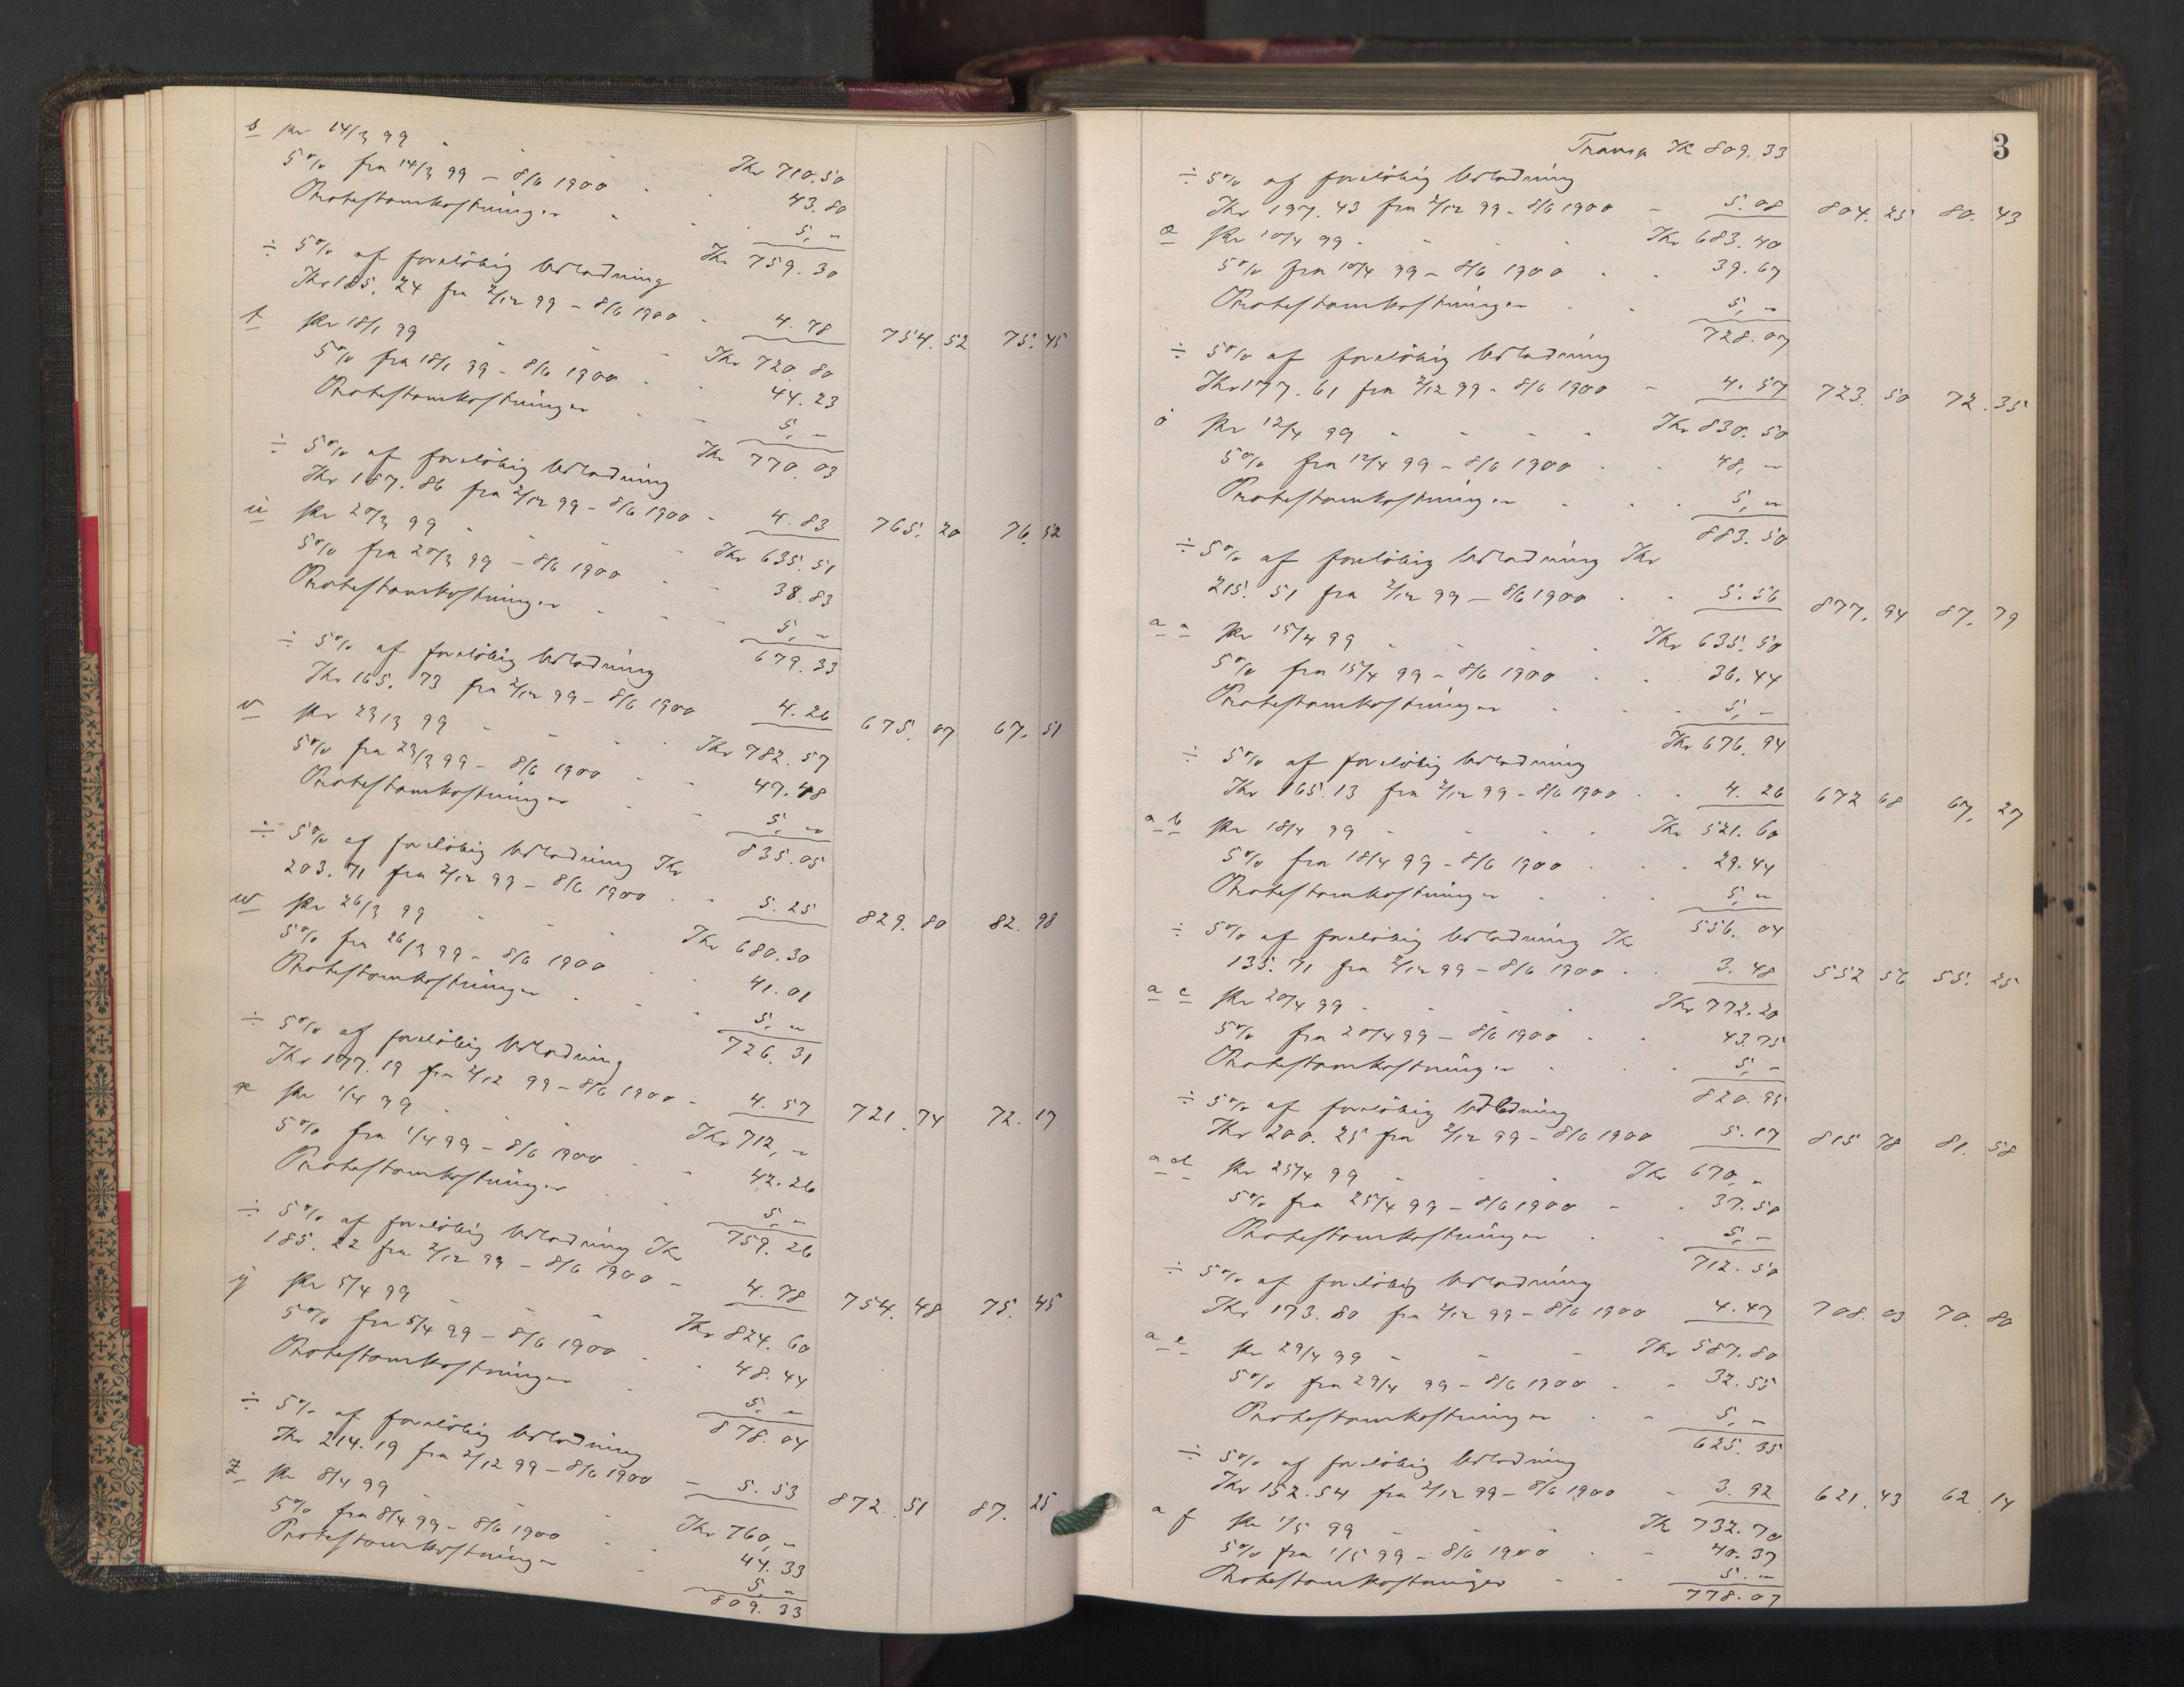 s pr 14/3 99 - - - Kr 710.50
5% fra 14/3 99 - 8/6 1900 - - 43.80
Protestomkostninger - - - 5, -
Kr 759.30
÷ 5% af foreløbig Udlodning
Kr 185.24 fra 2/12 99 - 8/6 1900 - 4.78 754.52 75.45
t pr 18/1 99 - - - Kr 720.80
5% fra 18/1 99 - 8/6 1900 - - 44.23
Protestomkostninger - - 5, -
Kr 770.03
÷ 5% af foreløbig Udlodning
Kr 187.86 fra 2/12 99 - 8/6 1900 - 4.83 765.20 76.52
u pr 20/3 99 - - - Kr 635.51
5% fra 20/3 99 - 8/6 1900 - - 38.83
Protestomkostninger - - - 5, -
679.33
÷ 5% af foreløbig Udlodning
Kr 165.73 fra 2/12 99 - 8/6 1900 4.26 675.07 67.51
v pr 23/3 99 - - - - Kr 782.57
5% fra 23/3 99 - 8/6 1900 - - 47.48
Protestomkostninger - - 5, -
835.05
÷ 5% af foreløbig Udlodning Kr
203.71 fra 2/12 99 - 8/6 1900 - - 5.25 829.80 82.98
w pr 26/3 99 - - - Kr 680.30
5% fra 26/3 99 - 8/6 1900 - - 41.01
Protestomkostninger - - - 5, -
726.31
÷ 5% af foreløbig Udlodning
Kr 177.19 fra 2/12 99 - 8/6 1900 - 4.57 721.74 72.17
x pr 1/4 99 - - - Kr 712, -
5% fra 1/4 99 - 8/6 1900 - - 42.26
Protestomkostninger - - 5, -
759.26
÷ 5% af foreløbig Udlodning Kr
185.22 fra 2/12 99 - 8/6 1900 - 4.78 754.48 75.45
y pr 5/4 99 - - - Kr 824.60
5% fra 5/4 99 - 8/6 1900 - - 48.44
Protestomkostninger - 5, -
878.04
÷ 5% af foreløbig Udlodning
Kr 214.19 fra 2/12 99 - 8/6 1900 - 5.53 872.51 87.25
z pr 8/4 99 - - - Kr 760, -
5% fra 8/4 99 - 8/6 1900 - - 44.33
Protestomkostninger - 5, -
809.33
3
Transp Kr 809.33
÷ 5% af foreløbig Udlodning
Kr 197.43 fra 2/12 99 - 8/6 1900 - 5.08 804.25 80.43
æ pr 10/4 99 - - - - Kr 683.40
5% fra 10/4 99 - 8/6 1900 - - 39.67
Protestomkostninger - - 5, -
728.07
÷ 5% af foreløbig Udlodning
Kr 177.61 fra 2/12 99 - 8/6 1900 - 4.57 723.50 72.35
ø pr 12/4 99 - - - - Kr 830.50
5% fra 12/4 99 - 8/6 1900 - - 48, -
Protestomkostninger - - - 5, -
883.50
÷ 5% af foreløbig Udlodning Kr
215.51 fra 2/12 99 - 8/6 1900 - - 5.56 877.94 87.79
a a pr 15/4 99 - - - - Kr 635.50
5% fra 15/4 99 - 8/6 1900 - - 36.44
Protestomkostninger - - - 5, -
Kr 676.94
÷ 5% af foreløbig Udlodning
Kr 165.13 fra 2/12 99 - 8/6 1900 - - 4.26 672 68 67.27
a b pr 18/4 99 - - - - Kr 521.60
5% fra 18/4 99 - 8/6 1900 - - - 29.44
Protestomkostninger - - - 5, -
556.04
÷ 5% af foreløbig Udlodning Kr
135.71 fra 2/12 99 - 8/6 1900 - - 3.48 552 56 55.25
a c pr 20/4 99 - - - - Kr 772.20
5% fra 20/4 99 - 8/6 1900 - - 43.75
Protestomkostninger - - - 5, -
820.95
÷ 5% af foreløbig Udlodning
Kr 200.25 fra 2/12 99 - 8/6 1900 5.17 815 78 81.58
a d pr 25/4 99 - - - Kr 670, -
5% fra 25/4 99 - 8/6 1900 - - 37.50
Protestomkostninger - - 5, -
712.50
÷ 5% af foreløbig Udlodning
Kr 173.80 fra 2/12 99 - 8/6 1900 4.47 708.03 70.80
a e pr 29/4 99 - - - Kr 587.80
5% fra 29/4 99 - 8/6 1900 - - 32.55
Protestomkostninger - - 5, -
625.35
÷ 5% af foreløbig Udlodning
Kr 152.54 fra 2/12 99 - 8/6 1900 - 3.92 621.43 62.14
a f pr 1/5 99 - - - Kr 732.70
5% fra 1/5 99 - 8/6 1900 - - 40.37
Protestomkostninger - - 5, -
778.07